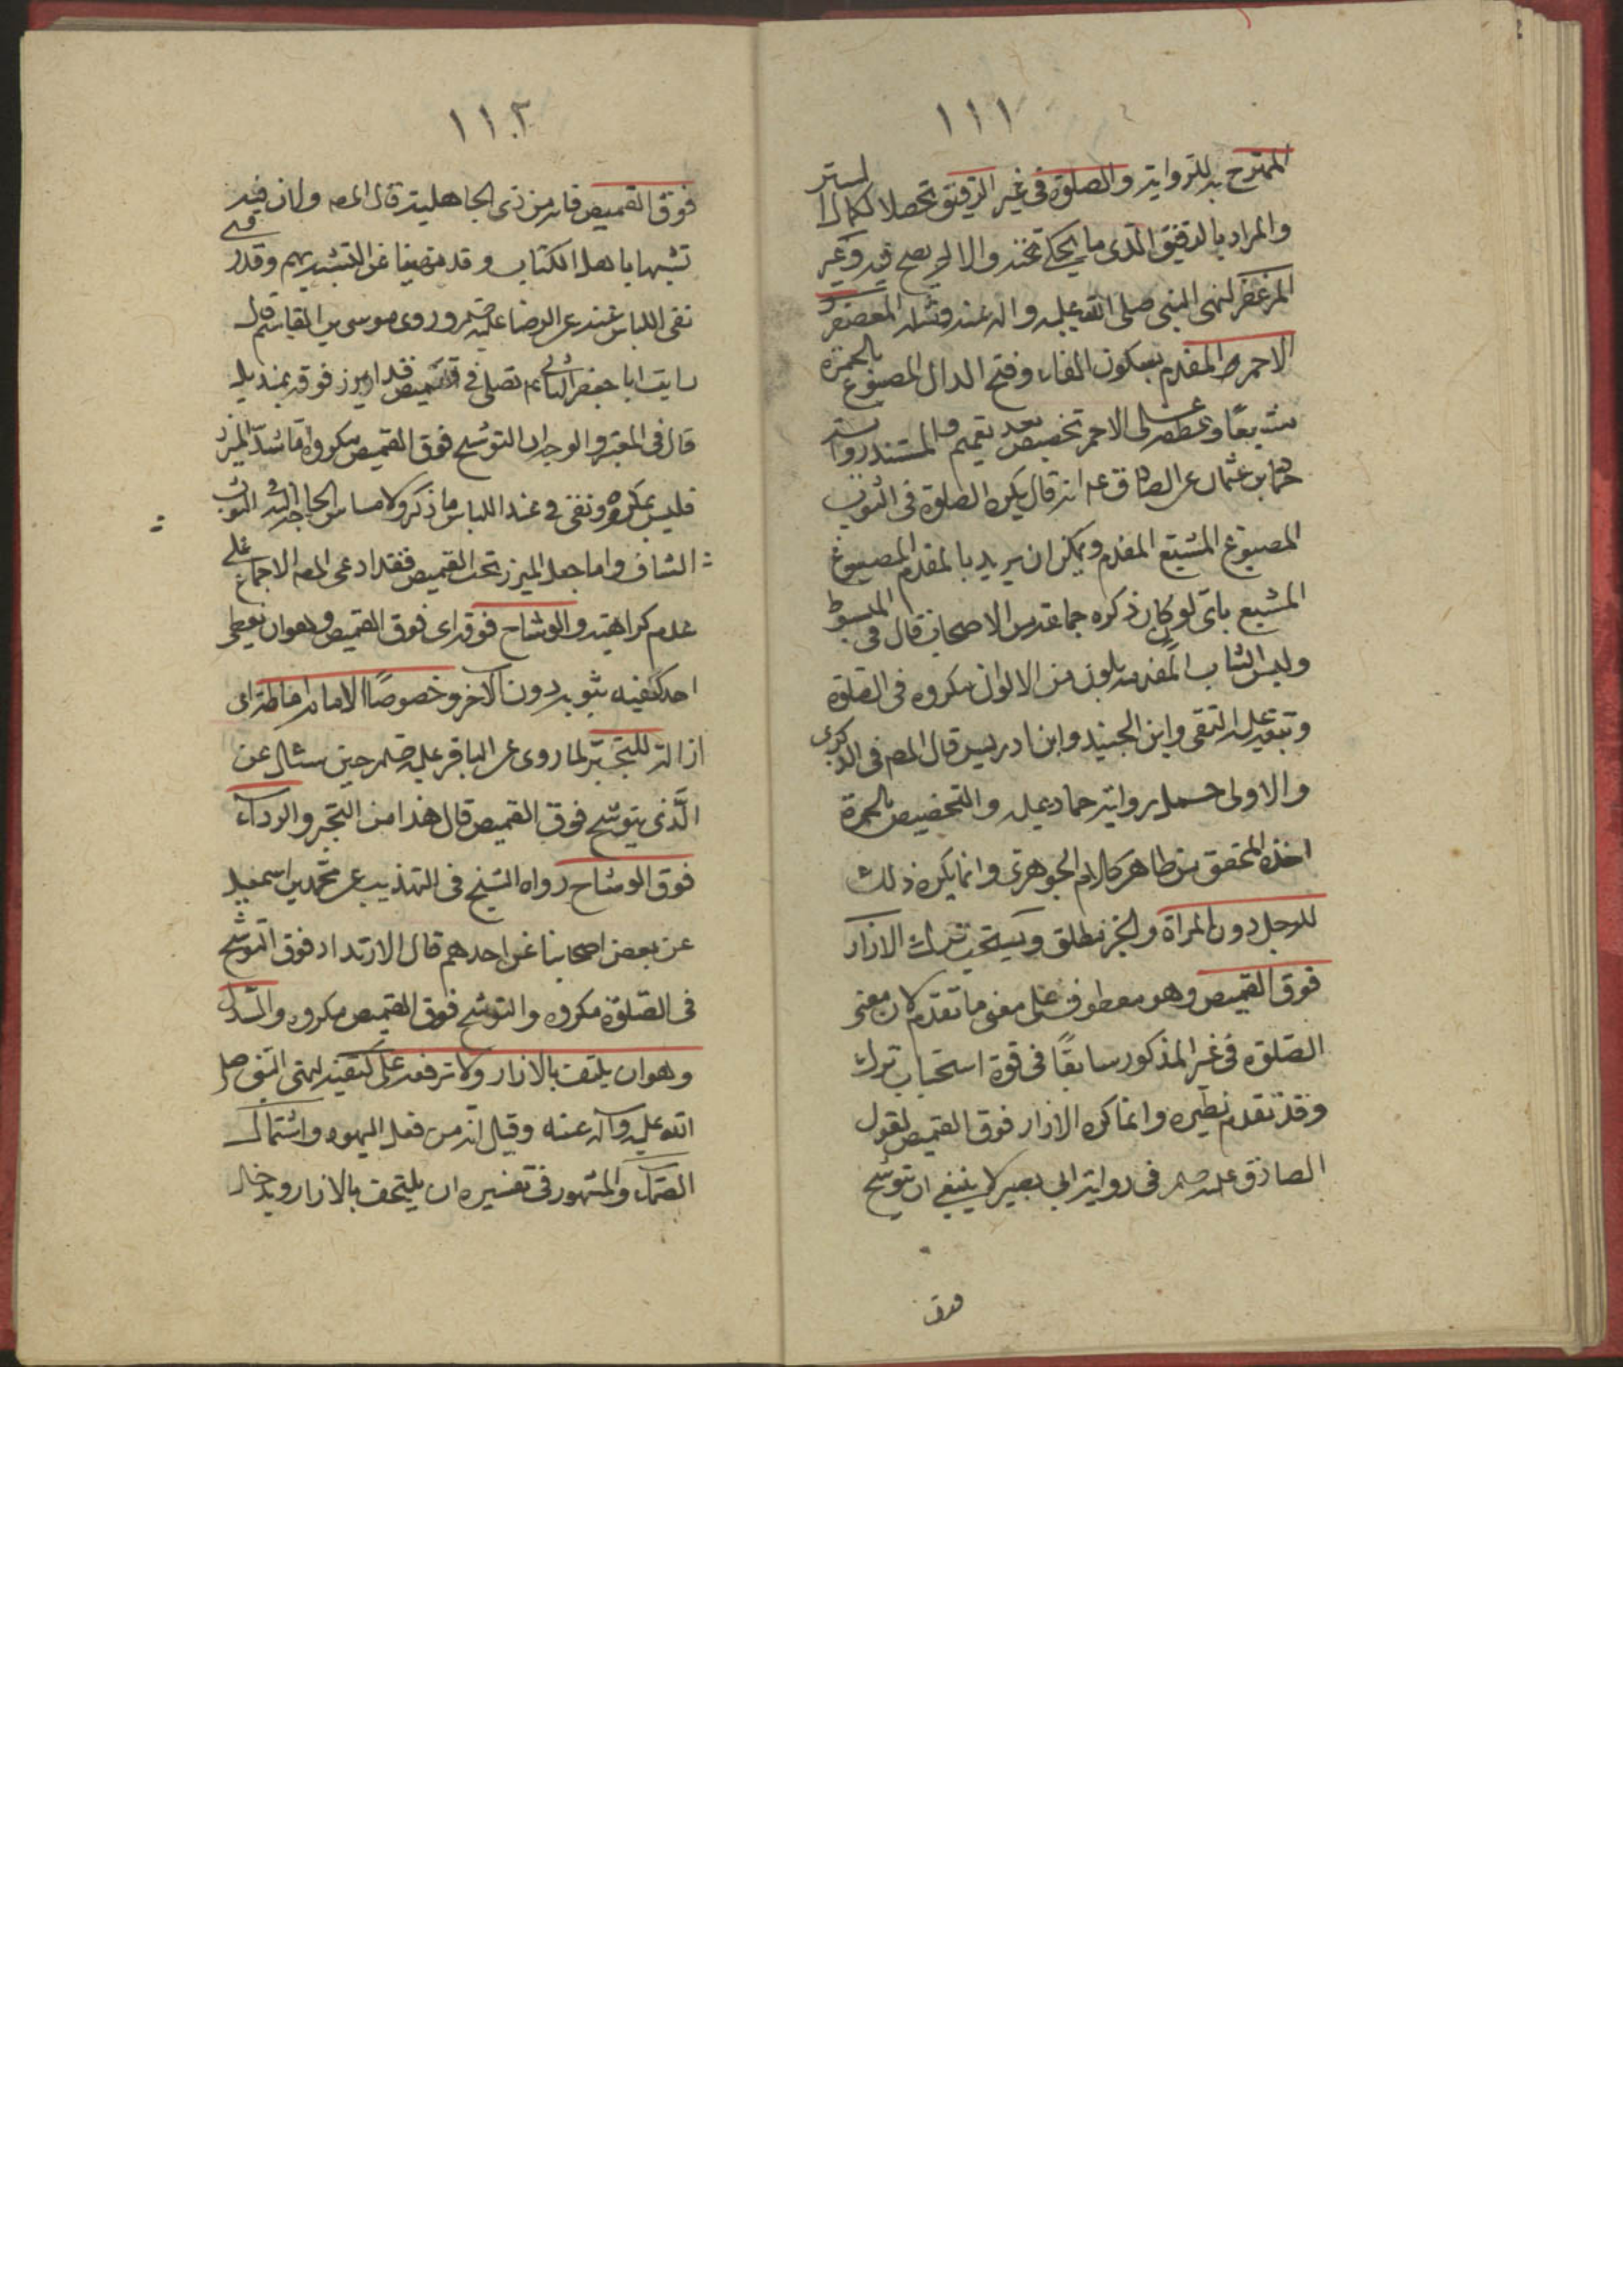 ١١١
الممتزج به للرواية والصلوة في غير الرقيق تحصلا لكمال الستر
والمراد بالرقيق الذي ما يحكي تحته والا لم يصح فيه وغير
المزعفر لنهي النبي صلى الله عليه واله عنه ومثله المعصفر
الاحمر والمفدم بسكون الفاء وفتح الدال المصبوغ بالحمرة
مشبعا وعطفه على الاحمر تخصيص بعد تعميم والمستند رواية
حماد بن عثمان عن الصادق عه انه قال يكره الصلوة في الثوب
المصبوغ المشبع المفدم ويمكن ان يريد بالمفدم المصبوغ
المشبع باي لون كان ذكره جماعة من الاصحاب قال في المبسوط
ولبس الثياب المفدمة بلون من الالوان مكروه في الصلوة
وتبعه عليه التقي وابن الجنيد وابن ادريس قال المصه في الذكرى
والاولى حمل رواية حماد عليه والتخصيص بالحمرة
اخذه المحقق من ظاهر كلام الجوهري وانما يكره ذلك
للرجل دون المراة والخز مطلق ويستحب ترك الازار
فوق القميص وهو معطوف على معنى ما تقدم لان معنى
الصلوة في غير المذكور سابقا في قوة استحباب ترك
وقد تقدم نظيره وانما كره الازار فوق القميص لقول
الصادق عليه صلم في رواية ابي بصير لا ينبغي ان تتوشح
فوق
١١٢
فوق القميص فانه من زي الجاهلية قال المصه ولان فيه
تشبها باهل الكتاب وقد نهينا عن التشبه بهم وقد روي
نفي الباس عنه عن الرضا عليه صلم وروى موسى بن القاسم قال
رايت ابا جعفر الثاني عم تصلى في قميص قد اتزر فوقه بمنديل
قال في المعتبر والوجه ان التوشح فوق القميص مكروه اما شد المئزر
فليس بمكروه ونفي في عنه الباس ما ذكر ولامساس الحاجة الى الثوب
الشاف واما جعل الميزر تحت القميص فقد ادعى المصه الاجماع على
عدم كراهته والوشاح فوقه اي فوق القميص وهو ان يغطي
احد كتفيه بثوب دون الاخر وخصوصا الامام اماطة اي
ازالة للتجبر لما روى عن الباقر عليه صلم حين سئال عن
الذي يتوشح فوق القميص قال هذا من التجبر والرداء
فوق الوشاح رواه الشيخ في التهذيب عن محمد بن اسمعيل
عن بعض اصحابنا عن احدهم قال الارتداد فوق التوشح
في الصلوة مكروه والتوشح فوق القميص مكروه والسدل
وهو ان يلتف بالازار ولا ترفعه على كتفيه لنهي النبي صلى
الله عليه وآله عنه وقيل انه من فعل اليهود واشتمال
الصماء والمشهور في تفسيره ان يلتحف بالازار ويدخل